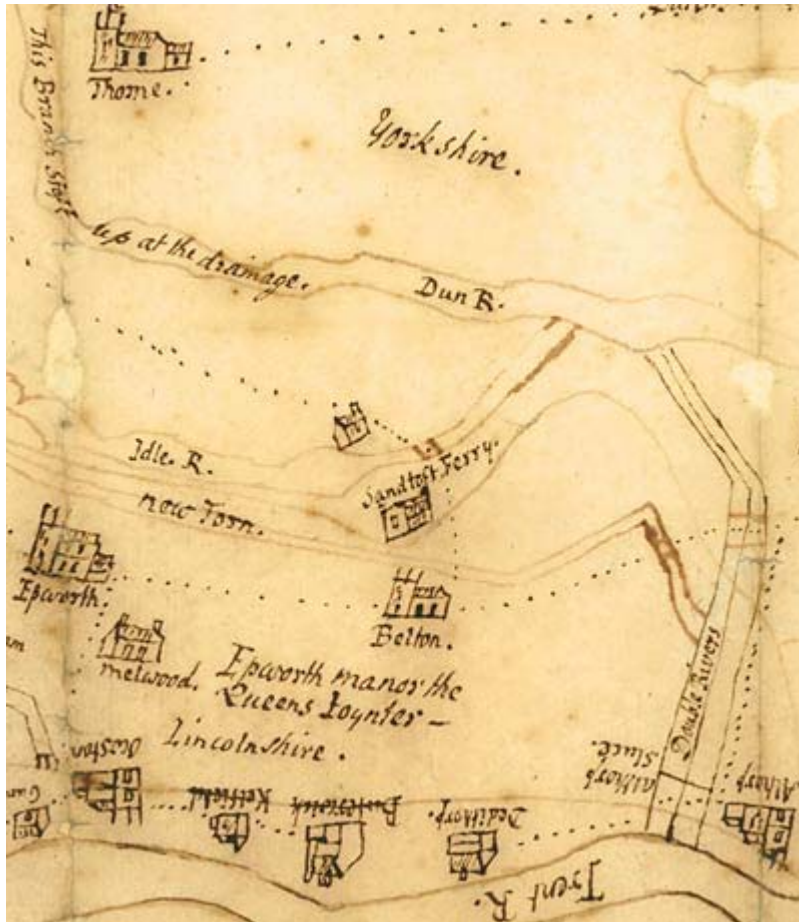 This Branch stopt
up at the drainage.
Thorne.
Yorkshire.
Dun R.
Idle. R.
Sandtoft Ferry.
new Torn.
Epworth
Belton.
melwood.
Epworth manor the
Queens Ioynter -
Lincolnshire.
Double Rivers
althorp
Sluce.
Althorp
Owston
Kelfield
Butterwick
Trent R.